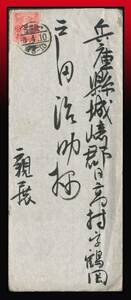 兵庫縣城崎郡日高村字鶴岡
戸田治助様
親展